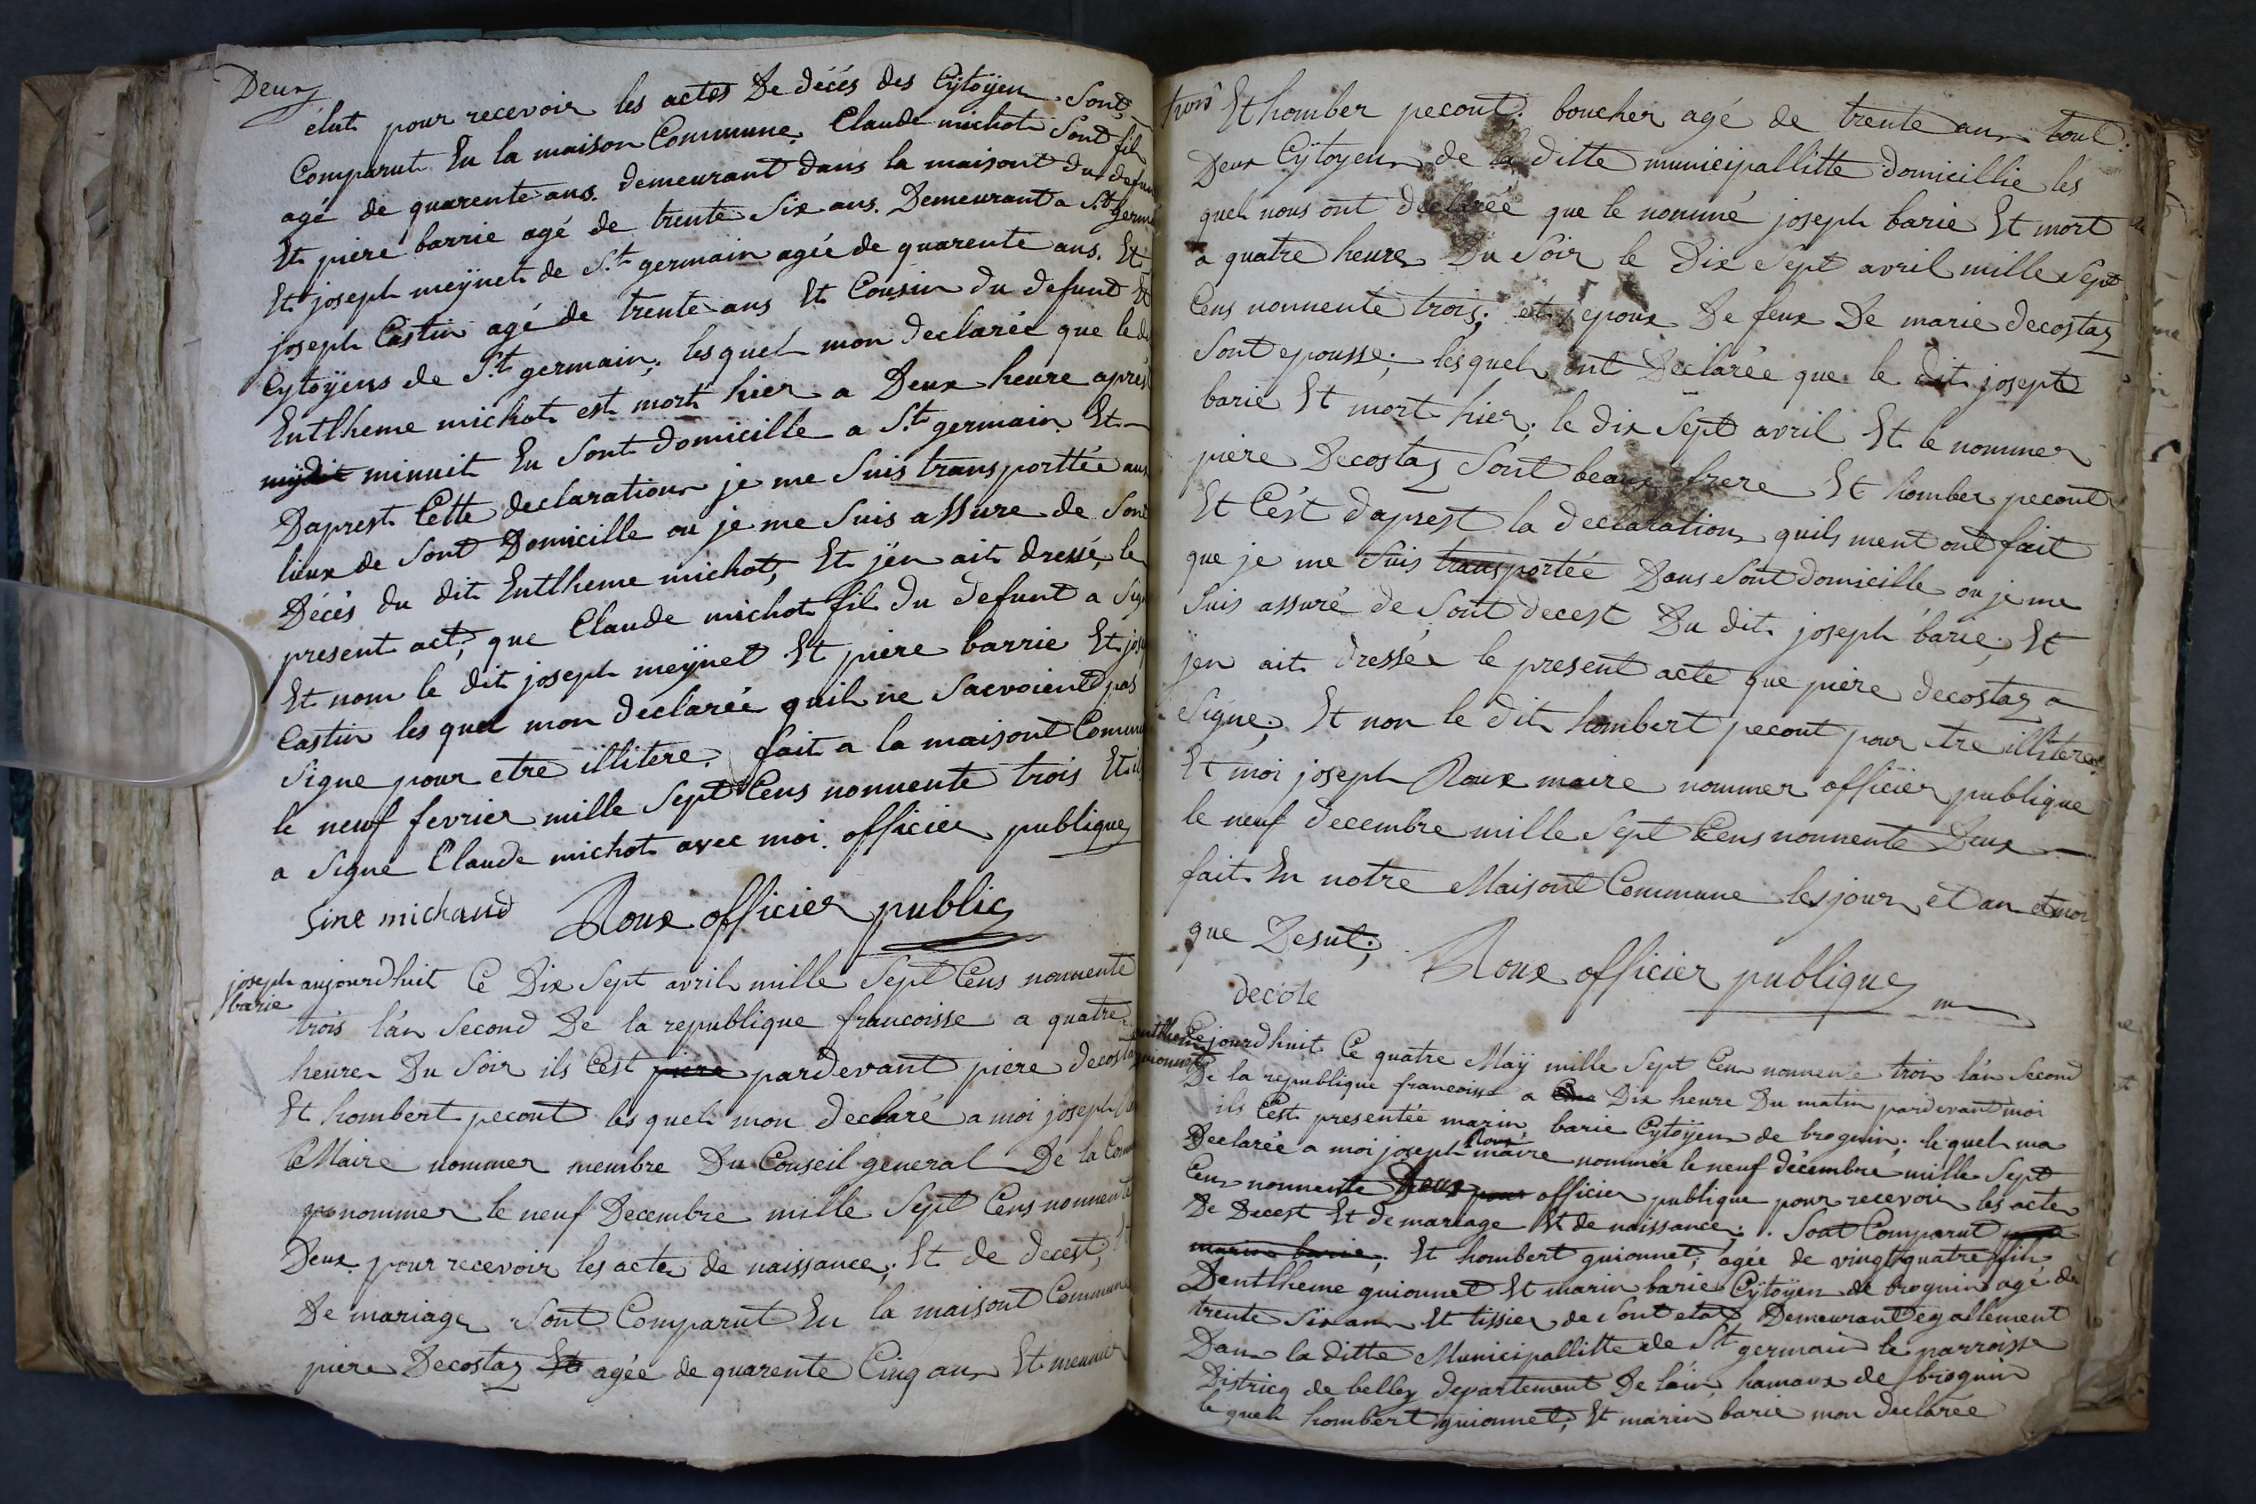 Deux
élut pour recevoir les actes De décés des Cÿtoÿen Sont
Comparut En la maison Commune, Claude michot Sont fil
agé de quarente ans. demeurant dans la maisont du defun
Et piere barrie agé de trente Six ans. Demeurant a S.t germe
Et joseph meÿnet de S.t germain agée de quarente ans. Et
joseph Castin agé de trente ans Et Cousin du defunt Et
Cytoÿens de S.t germain; lesquel mon declarée que le d
Entlheme michot est mort hier a Deux heure apres
mÿdit minuit En Sont domicille a S.t germain Et
Daprest Cette declaration je me Suis transporttée aux
lieux de Sont Domicille ou je me Suis assure de Sont
Décés du dit Entlheme michot, Et j'en ait dressé, le
present act; que Claude michot fil du defunt a Sign
Et nom le dit joseph meÿnet Et piere barrie Et jose
Castin les quel mon declarée quil ne Sacvoient pas
Signe pour etre illitere. fait a la maisont Comune
le neuf fevrier mille Sept Cens nonnente trois Et il
a Signe Claude michot avec moi officier publique
Sine michaud Roux officier public
joseph barie
aujourdhuit Ce Dix Sept avril mille Sept Cens nonnente
trois l'an Second De la republique francoisse a quatre
heure Du Soir ils Cest piere pardevant piere decosta
Et hombert pecout les quel mon declaré a moi joseph
Maire nommer membre Du Conseil general De la Com
nommer le neuf Decembre mille Sept Cens nonnente
Deux pour recevoir les acte de naissance; Et de decest, Et
De mariage Sont Comparut En la maisont Commune
piere Decostaz Et agée de quarente Cinq ans Et meunier
trois
Et homber pecout; boucher agé de trente ans tout
Deux Cÿtoyen de la ditte municipallitte domicillie les
quel nous ont declarée que le nommé joseph barie Et mort
a quatre heure Du Soir le Dix Sept avril mille Sept
Cens nonnente trois; et epoux De feux De marie decostaz
Sont epousse; lesquel ont Declarée que le dit josepte
barie Et mort hier; le dix Sept avril Et le nommer
piere Decostaz Sont beaux frere Et homber pecout
Et Cést daprest la declaration quils ment ont fait
que je me Suis transportée Dans Sont domicille ou je me
Suis assuré de Sont decest Du dit joseph barie; Et
jen ait dressée le present acte que piere decostaz a
Signe; Et non le dit hombert pecout pour etre illitere
Et moi joseph Roux maire nommer officier publique
le neuf decembre mille Sept Cens nonnente Deux
fait En notre Maisont Commune les jour et an et moi
que Desut;
Roux officier publique
decote
Entlheme guionnet
Cejourdhuit Ce quatre Maÿ mille Sept Cens nonnente trois l'an Second
De la republique francoisse a Dix heure Du matin pardevant moi
ils Cest presentée marin barie Cytoÿen de brognin; le quel ma
Declarée a moi joseph Roux maire nommée le neuf décembre mille Sept
Cens nonnente Deux pour officier publique pour recevoir les acte
De Decest Et de mariage Et de naissance; Sont Comparut
marin barie; Et hombert guionnet; agée de vingt quatre fin
Dentlheme guionnet Et marin barie Cÿtoÿen de brognin agé de
trente Six ans Et tissier de Sont etat Demeurant egallement
Dans la ditte Municipallitte de St germain le parroisse
Districq de belley departement De l'ain hamaux de brognin
le quel hombert guionnet; Et marin barie mon declarée